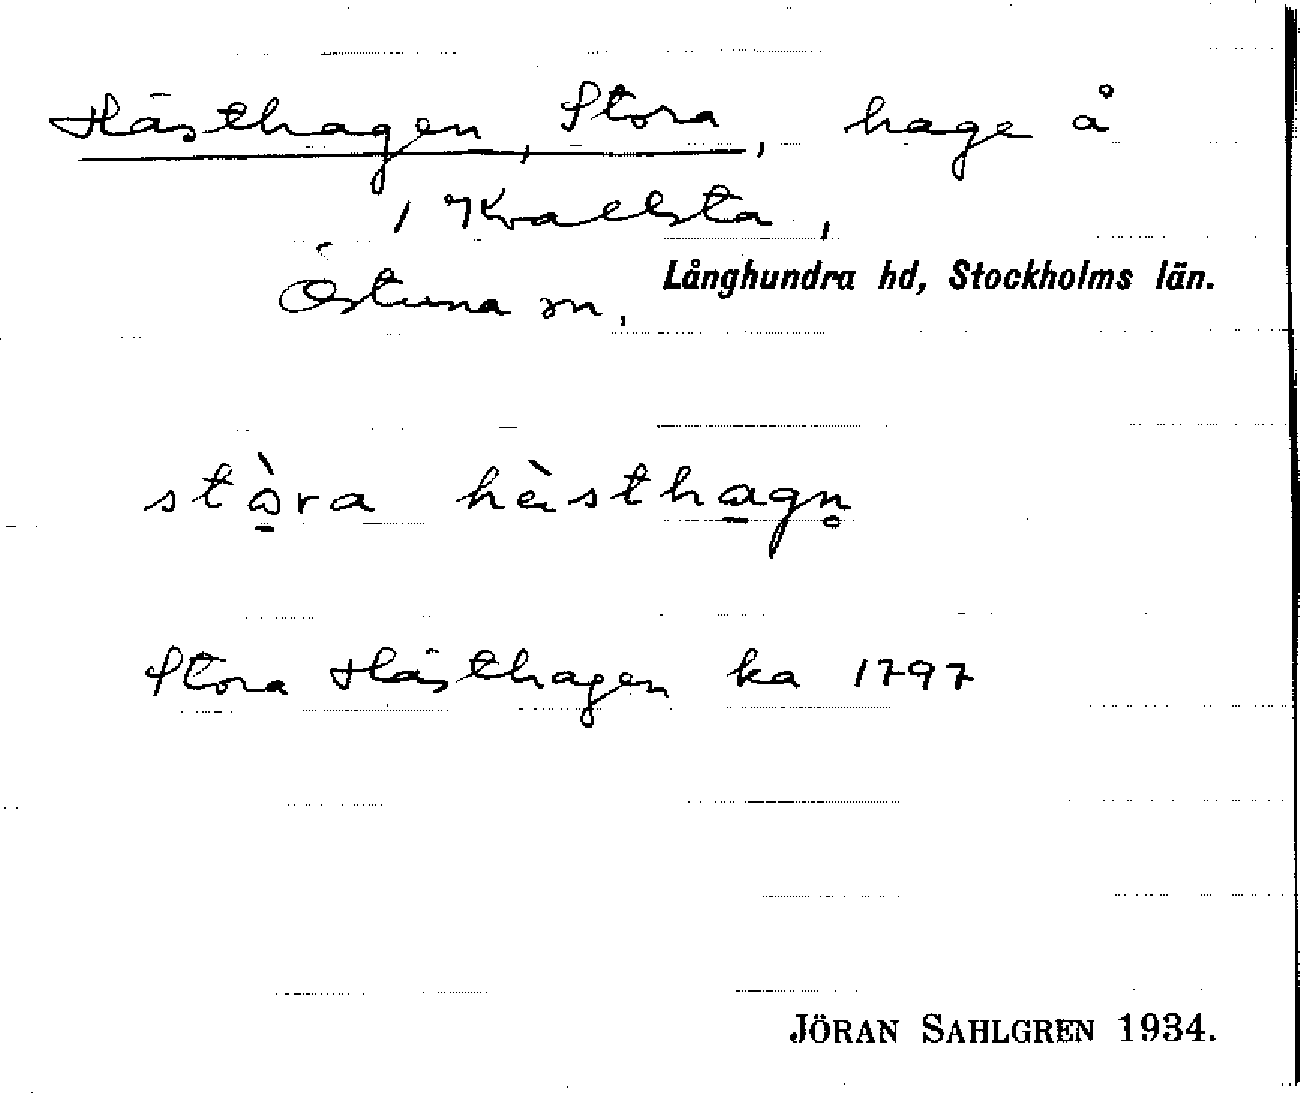 Hästhagen, Stora, hage å
/ Krallsta,
Östuna sn, Långhundra hd, Stockholms län.
stò̱ra hæ̀stha̱gn̥
Stora Hästhagen ka 1797
JÖRAN SAHLGREN 1934.